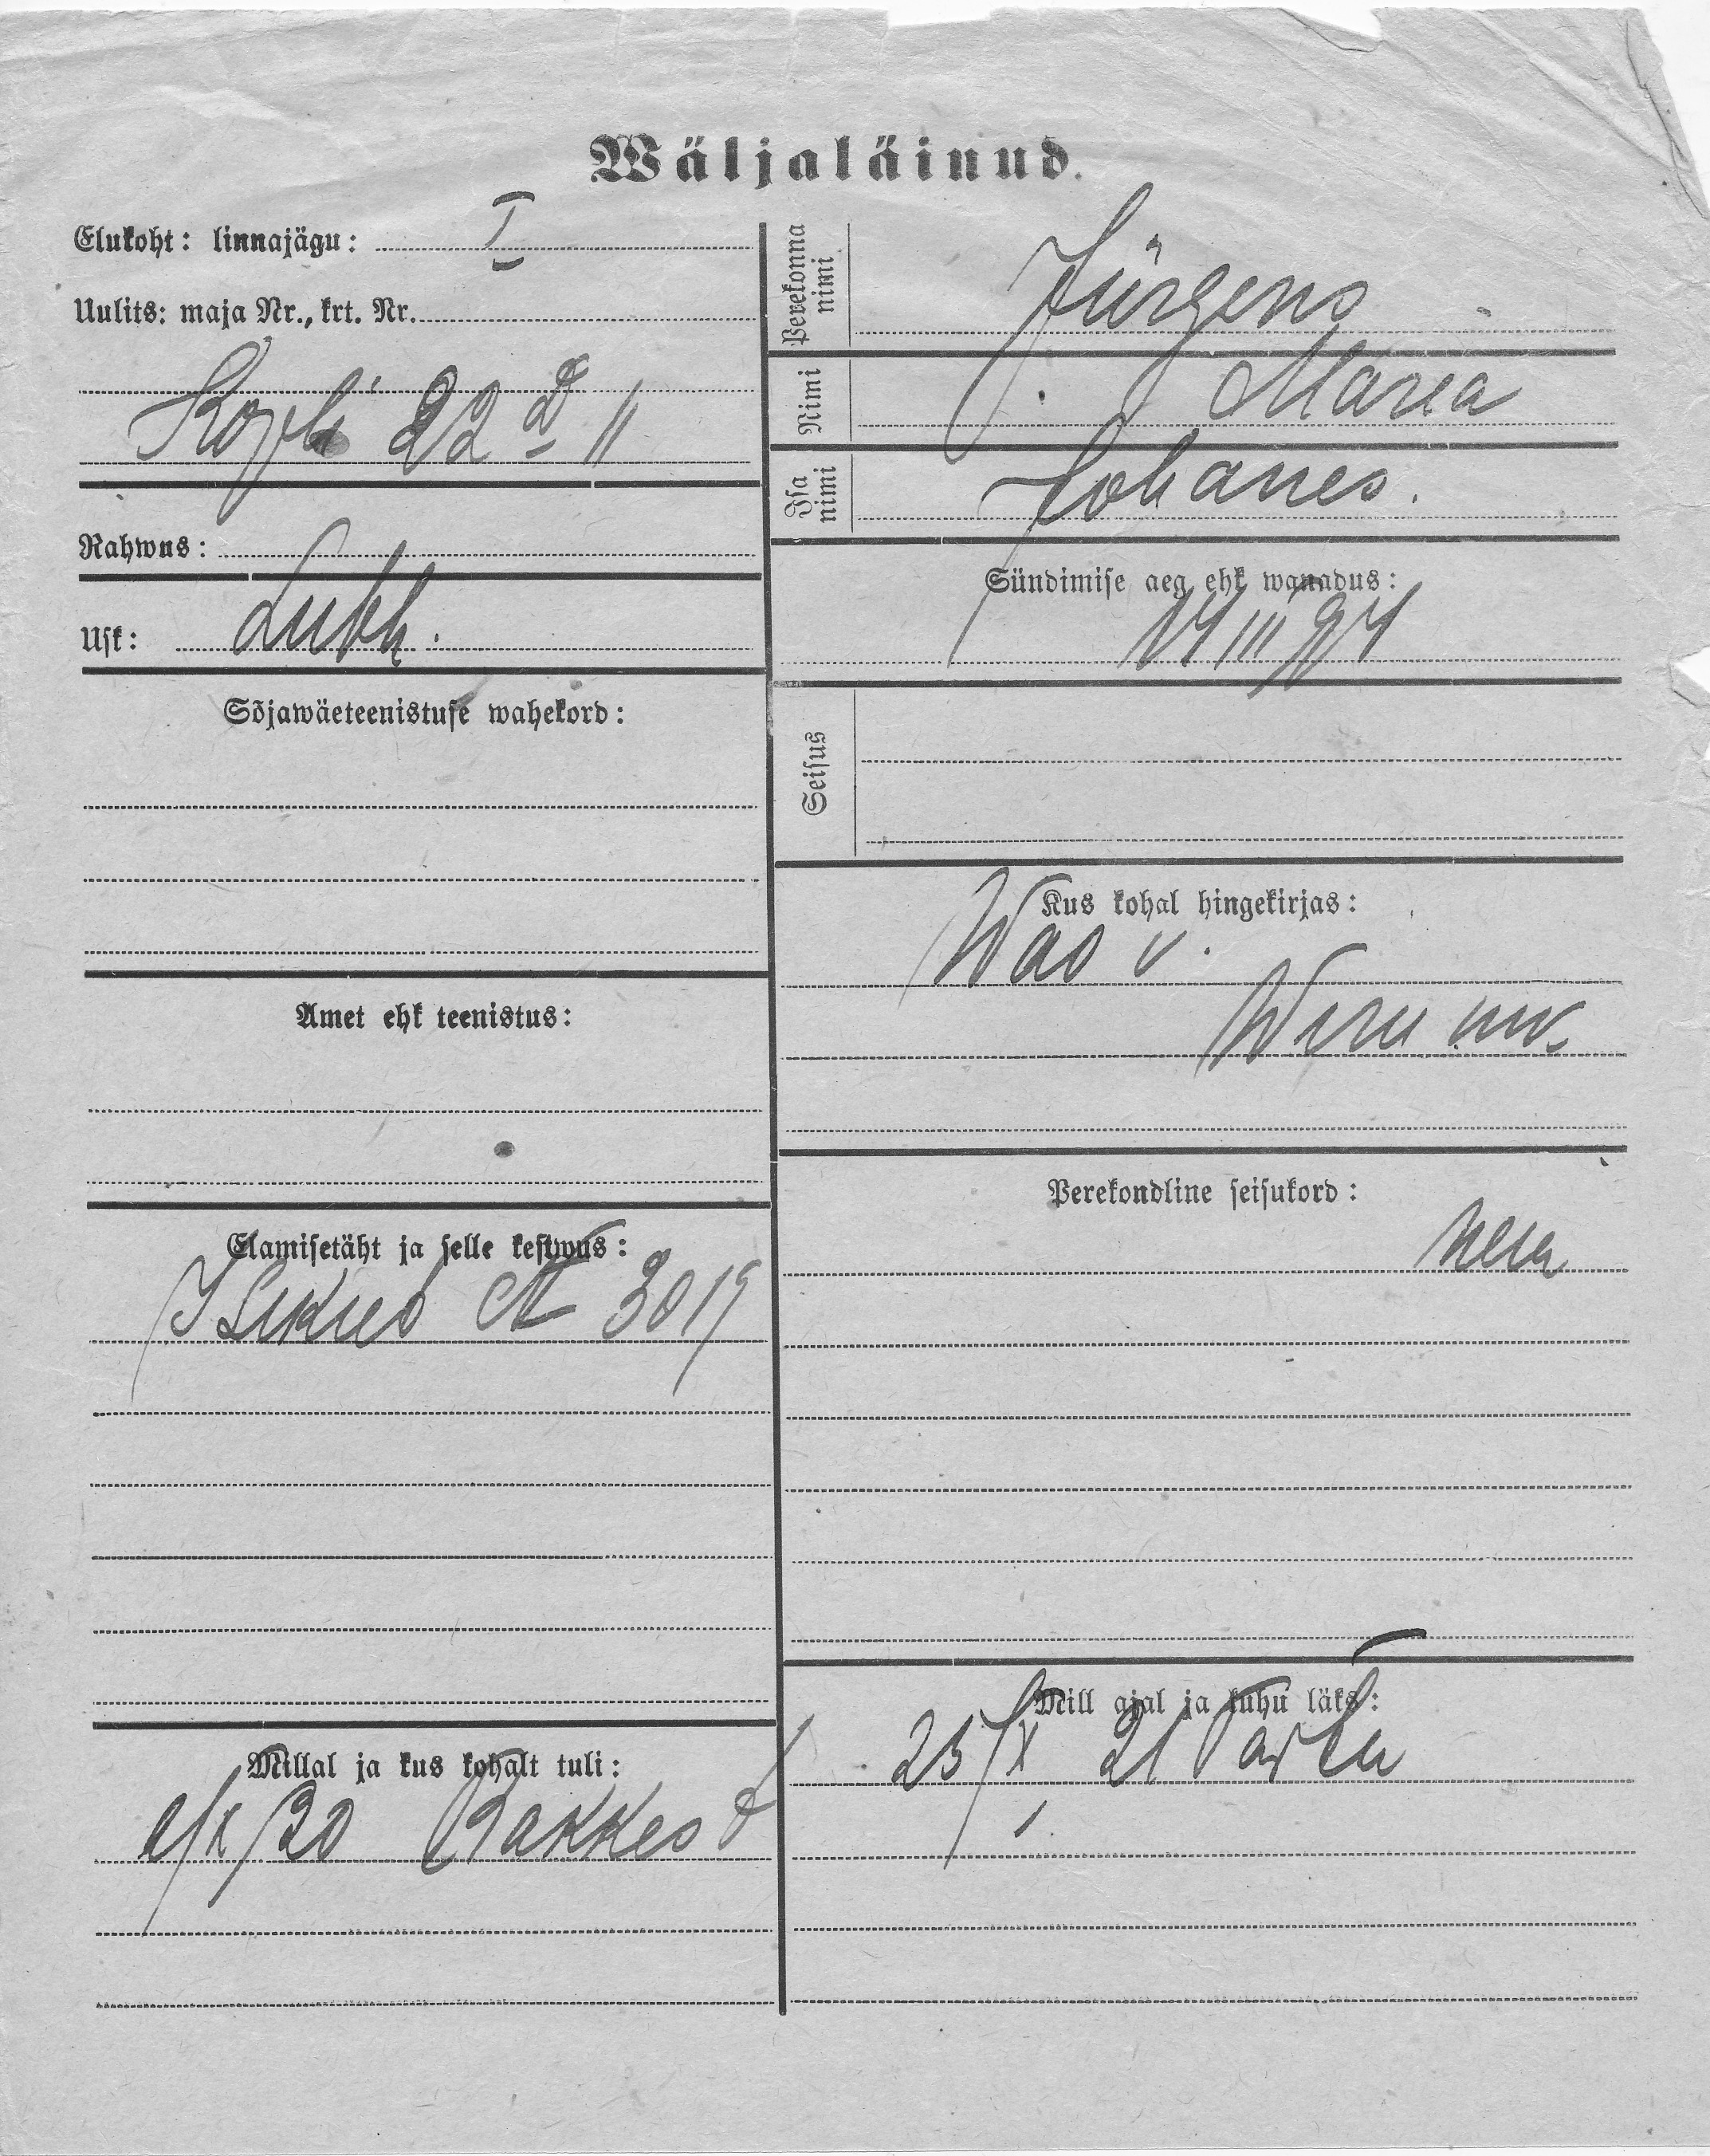 Wäljaläinud.
Elukoht: linnajägu: I
Uulits: maja Nr., krt. Nr.
22 11
Rahwus:
Usk: Luth.
Sõjawäeteenistuse wahekord:
Amet ehk teenistus:
Elamisetäht ja selle kestwus:
Isikued № 3019
Millal ja kus kohalt tuli:
/20 Rakkest
Perekonna nimi
Jürgens
Nimi
Maria
Isa nimi
Johanes.
Sündimise aeg ehk wanadus:
14/III 94
Seisus
Kus kohal hingekirjas:
Wao v.
Wiru mk.
Perekondline seisukord:
neiu
Mill ajal ja kuhu läks:
25/X 21 Tartu